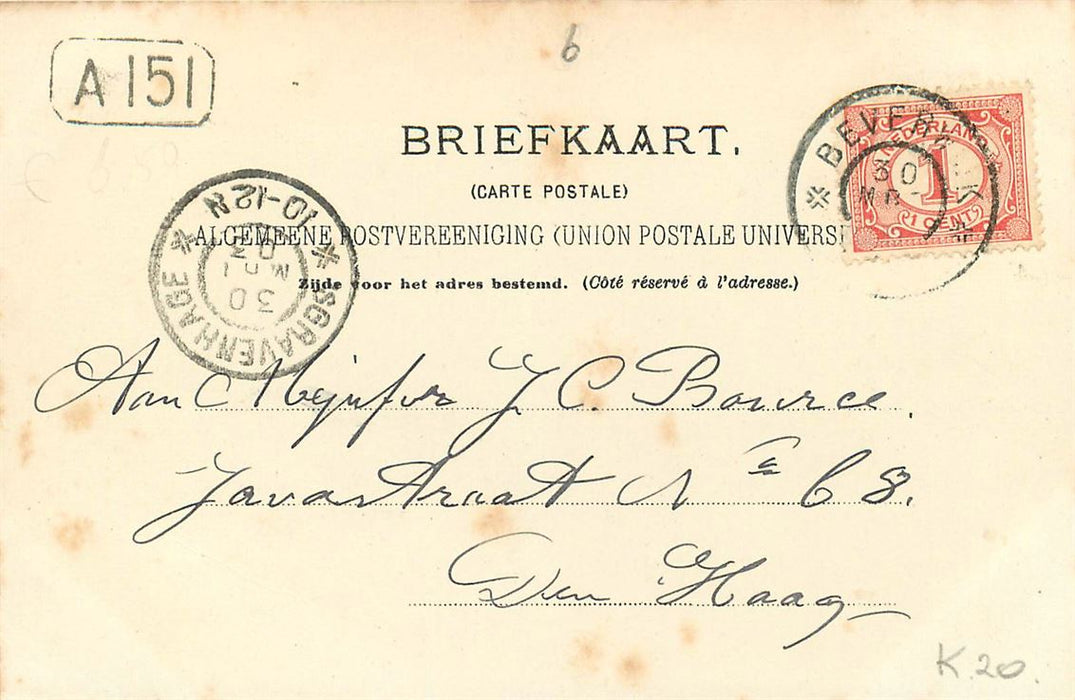 A 151
6
BRIEFKAART.
(CARTE POSTALE)
ALGEMEENE POSTVEREENIGING (UNION POSTALE UNIVERS
Zijde voor het adres bestemd. (Côté réservé à l'adresse.)
NEDERLAND
1
1 CENT
BEVER K
30
'SGRAVENHAGE
10-12 N
30
Aan Mejufvr J C. Bource.
Javastraat No 68.
Den Haag
K.20.